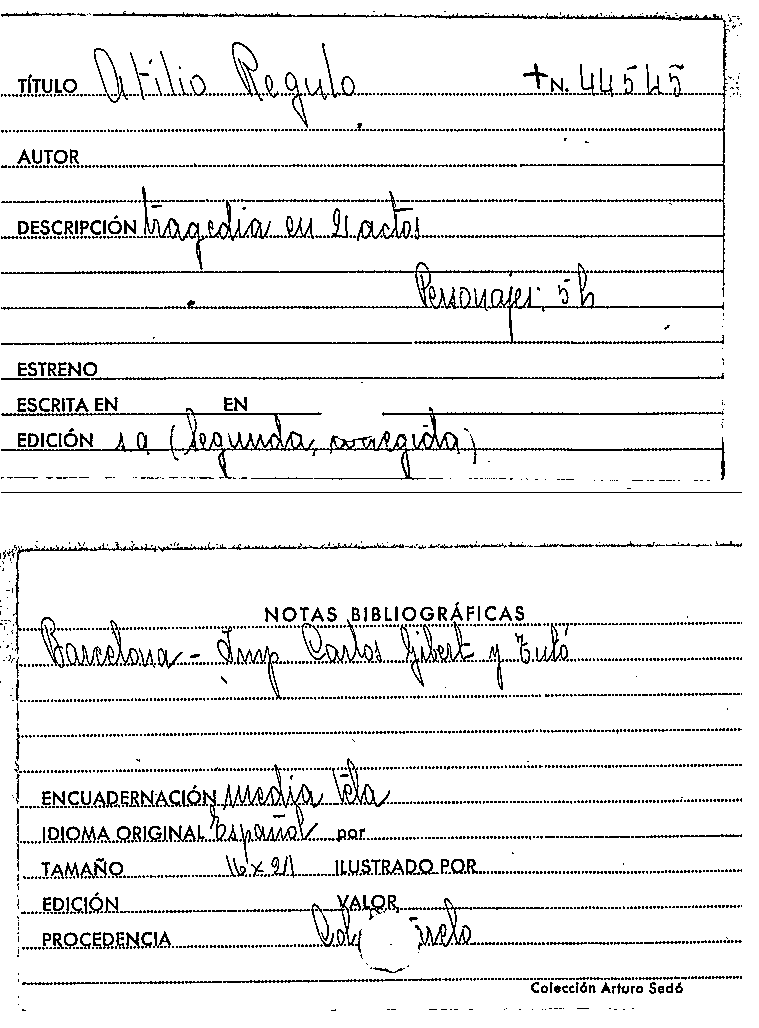 TÍTULO Atilio Regulo +N. 44545
AUTOR
DESCRIPCIÓN tragedia en 2 actos
Personajes: 5h
ESTRENO
ESCRITA EN EN
EDICIÓN 1a (Segunda, corregida)
NOTAS BIBLIOGRÁFICAS
Barcelona - Imp Carlos Gibert y Tutó
ENCUADERNACIÓN media tela
IDIOMA ORIGINAL Español por
TAMAÑO 16 x 21 ILUSTRADO POR
EDICIÓN VALOR
PROCEDENCIA
Colección Arturo Sedó